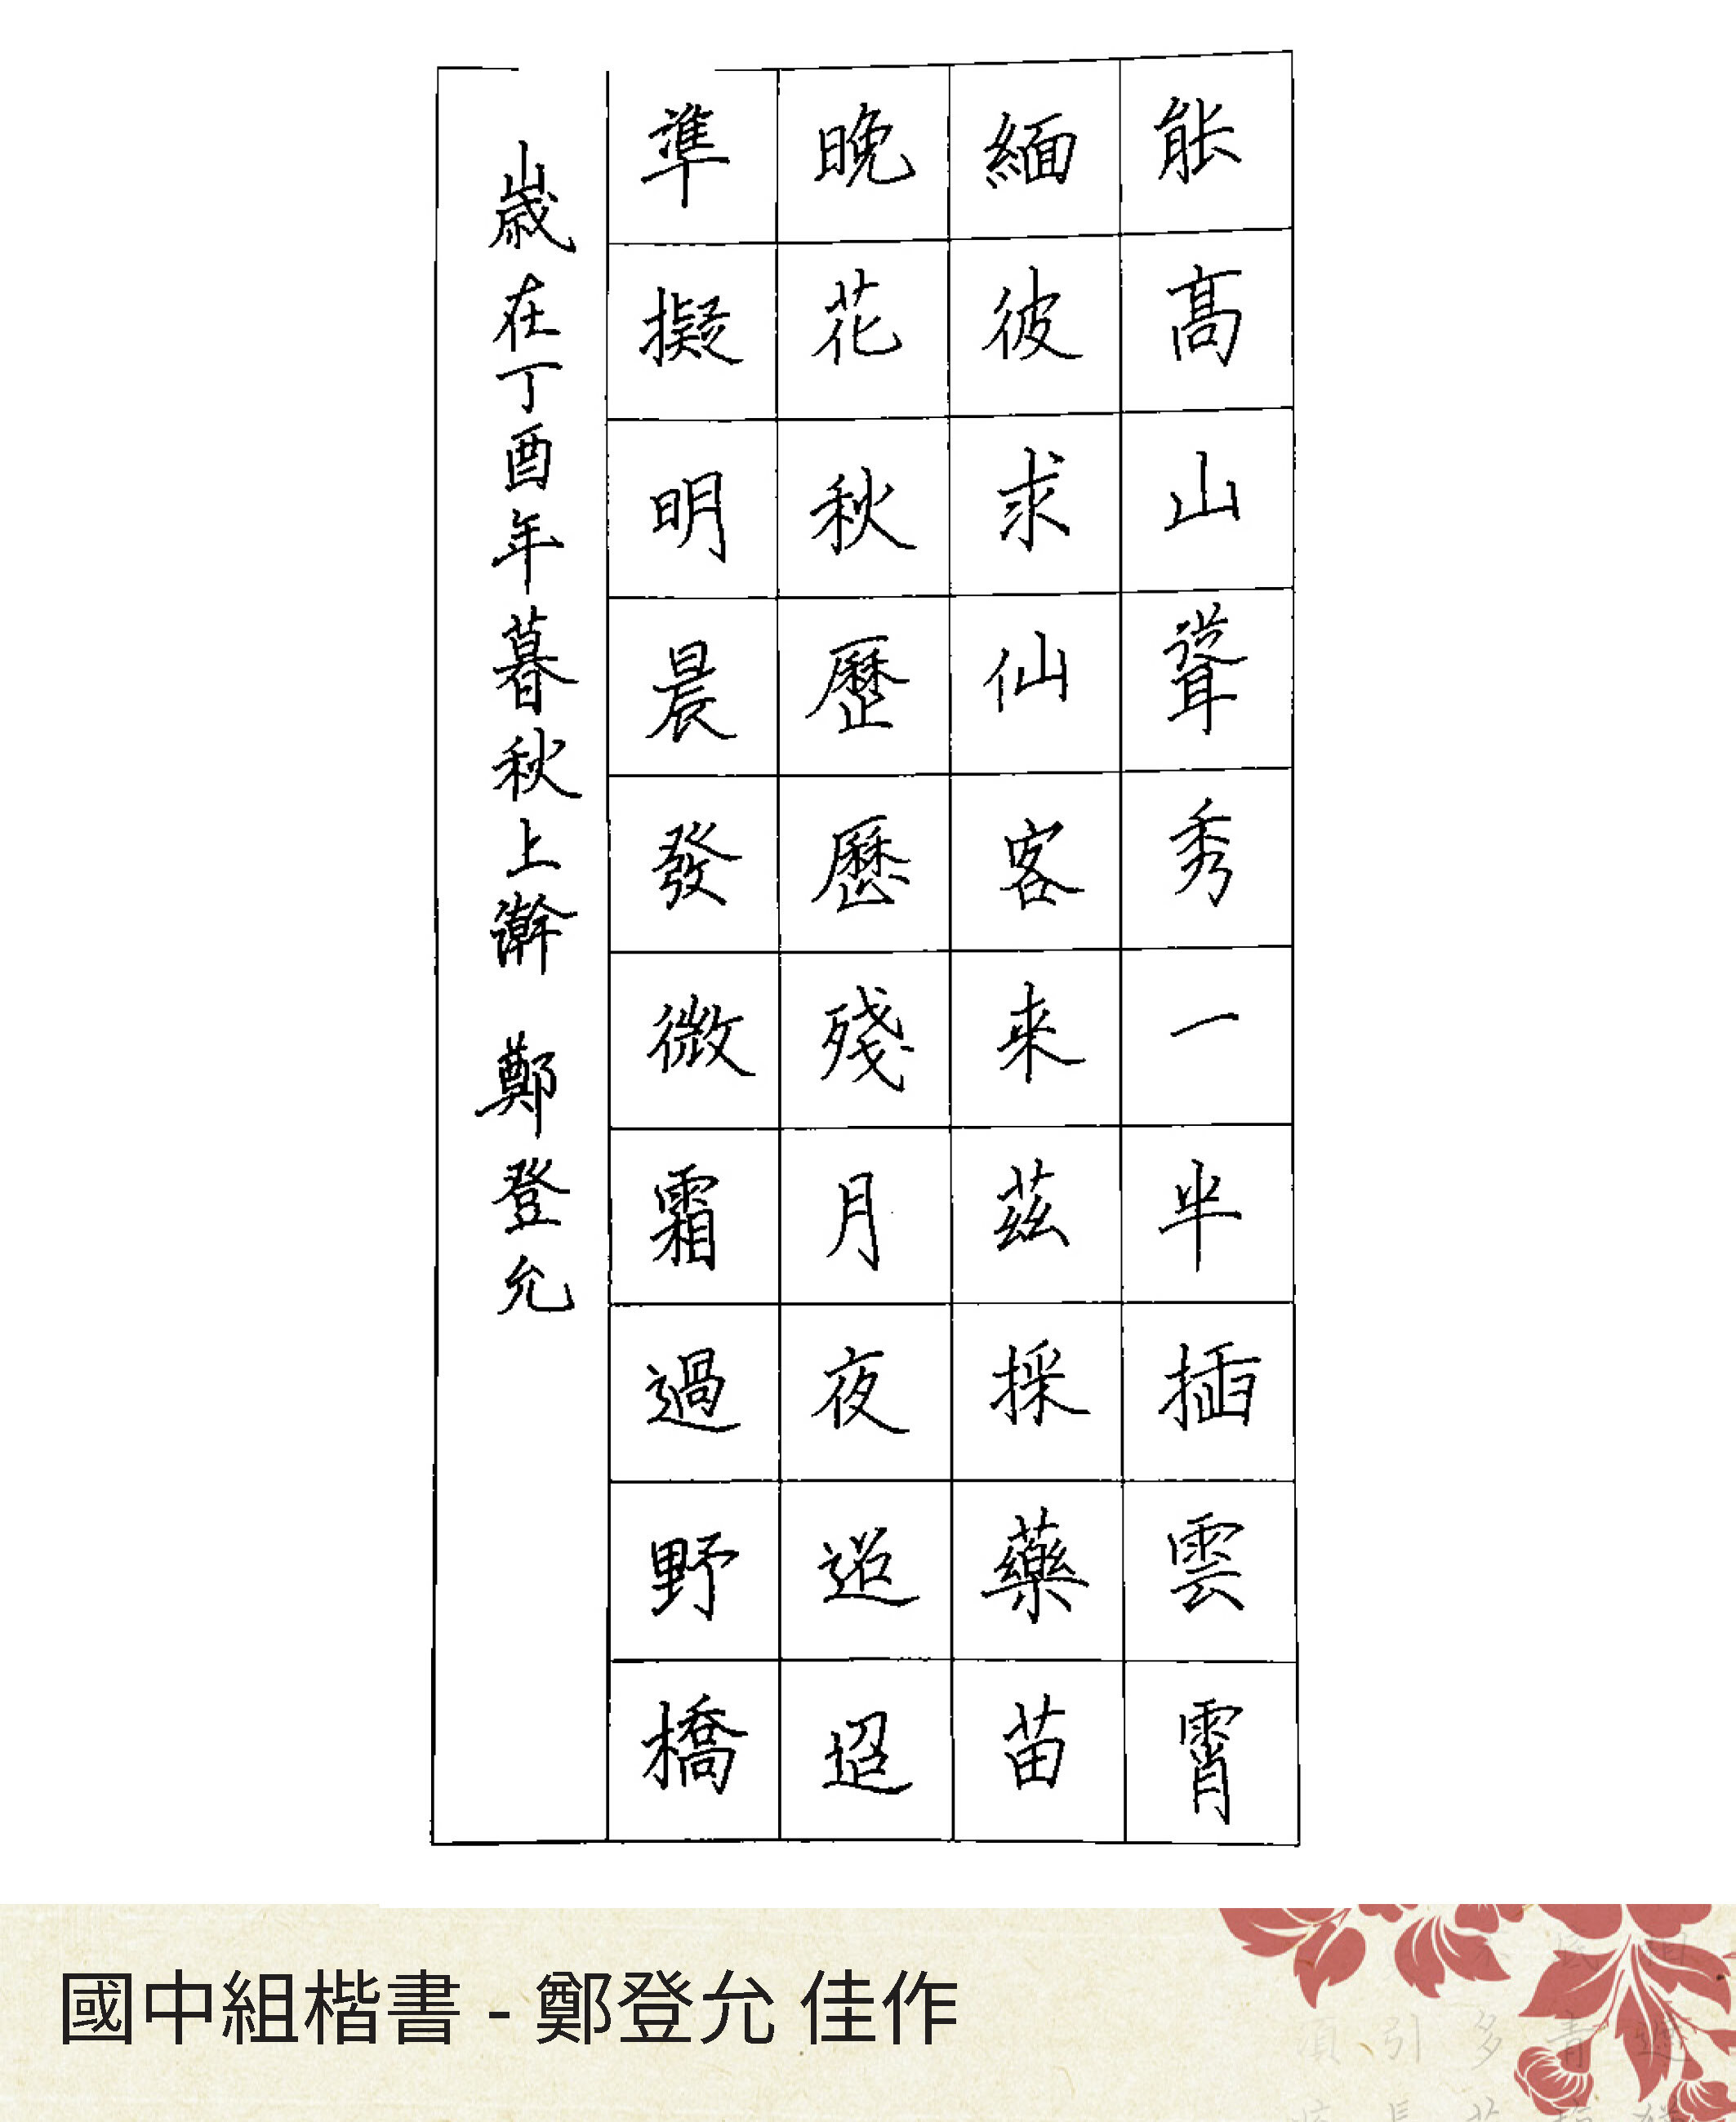 能高山聳秀一半插雲霄
緬彼求仙客来茲採藥苗
晚花秋歷歷殘月夜迢迢
準擬明晨發微霜過野橋
歲在丁酉年暮秋上澣 鄭登允
國中組楷書 - 鄭登允 佳作